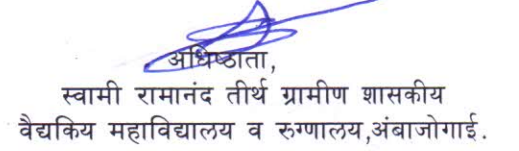 अधिष्ठाता,
स्वामी रामानंद तीर्थ ग्रामीण शासकीय
वैद्यकिय महाविद्यालय व रुग्णालय,अंबाजोगाई.